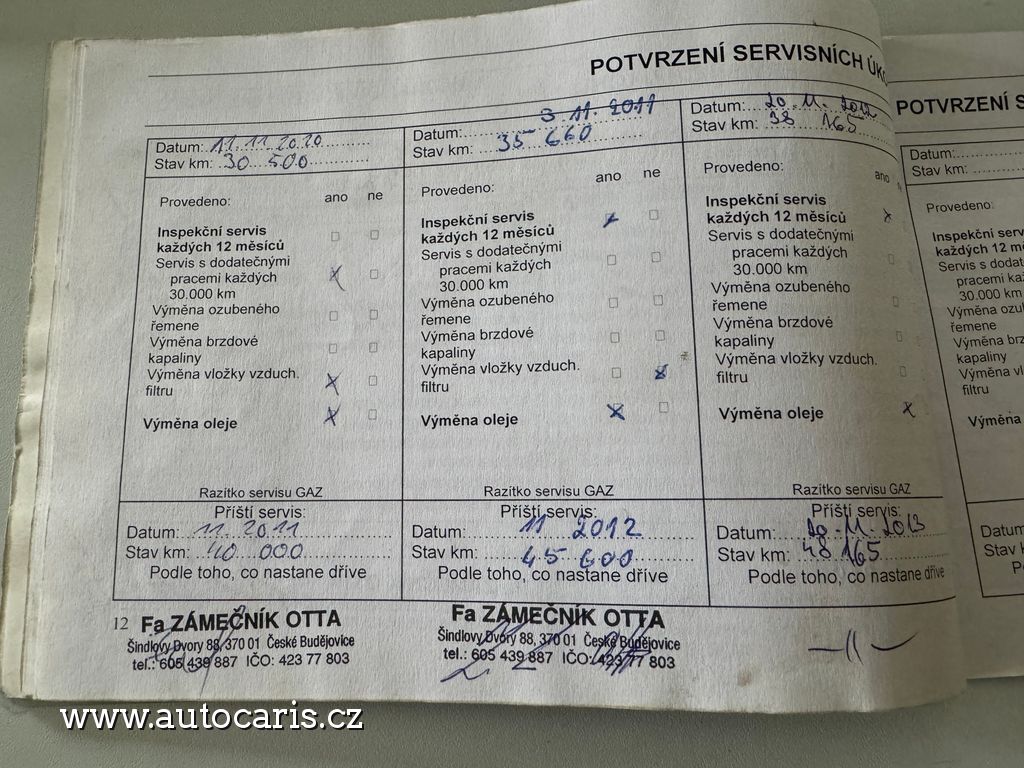 POTVRZENÍ SERVISNÍCH ÚKO
Datum: 11. 11. 2020
Stav km: 30 500
Provedeno: ano ne
Inspekční servis
každých 12 měsíců
Servis s dodatečnými
pracemi každých
30.000 km
Výměna ozubeného
řemene
Výměna brzdové
kapaliny
Výměna vložky vzduch.
filtru
Výměna oleje
Razítko servisu GAZ
Příští servis:
Datum: 11. 2011
Stav km: 40 000
Podle toho, co nastane dříve
12
Fa ZÁMEČNÍK OTTA
Šindlovy Dvory 88, 370 01 České Budějovice
tel.: 605 439 887 IČO: 423 77 803
Datum: 3. 11. 2011
Stav km: 35 660
Provedeno: ano ne
Inspekční servis
každých 12 měsíců
Servis s dodatečnými
pracemi každých
30.000 km
Výměna ozubeného
řemene
Výměna brzdové
kapaliny
Výměna vložky vzduch.
filtru
Výměna oleje
Razítko servisu GAZ
Příští servis:
Datum: 11 2012
Stav km: 45 600
Podle toho, co nastane dříve
Fa ZÁMEČNÍK OTTA
Šindlovy Dvory 88, 370 01 České Budějovice
tel.: 605 439 887 IČO: 423 77 803
Datum: 20. 11. 2012
Stav km: 38 165
Provedeno: ano
Inspekční servis
každých 12 měsíců
Servis s dodatečnými
pracemi každých
30.000 km
Výměna ozubeného
řemene
Výměna brzdové
kapaliny
Výměna vložky vzduch.
filtru
Výměna oleje
Razítko servisu GAZ
Příští servis:
Datum: 20. 11. 2013
Stav km: 48 165
Podle toho, co nastane dříve
—||—
POTVRZENÍ S
Datum:
Stav km:
Provedeno:
Inspekční serv
každých 12 mě
Servis s dodat
pracemi ka
30.000 km
Výměna ozub
řemene
Výměna brz
kapaliny
Výměna vlo
filtru
Výměna
Datum
Stav k
www.autocaris.cz